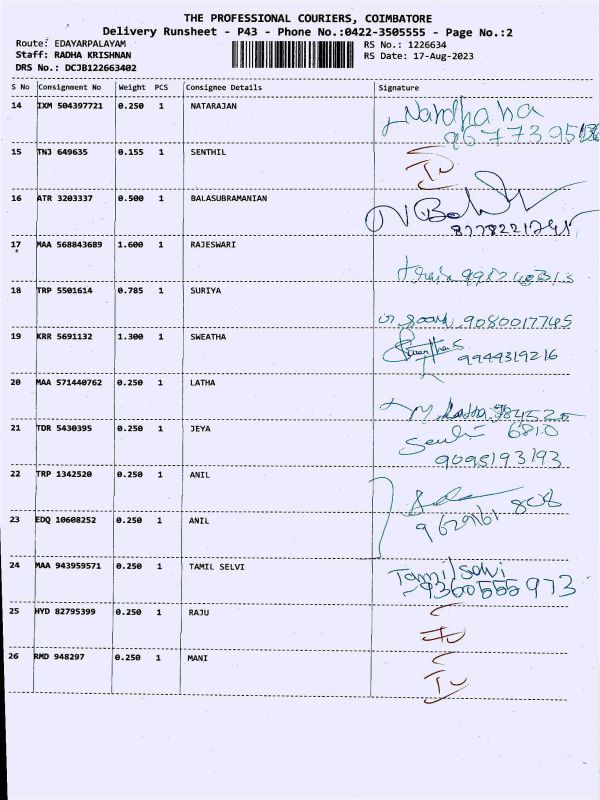 THE PROFESSIONAL COURIERS, COIMBATORE
Delivery Runsheet - P43 - Phone No.:0422-3505555 - Page No.:2
Route: EDAYARPALAYAM
RS No.: 1226634
Staff: RADHA KRISHNAN
RS Date: 17-Aug-2023
DRS No.: DCJB122663402
S No Consignment No Weight PCS Consignee Details Signature
14 IXM 504397721 0.250 1 NATARAJAN
15 TNJ 649635 0.155 1 SENTHIL
16 ATR 3203337 0.500 1 BALASUBRAMANIAN
17 MAA 568843689 1.600 1 RAJESWARI
18 TRP 5501614 0.785 1 SURIYA 9080017745
19 KRR 5691132 1.300 1 SWEATHA
9944319216
20 MAA 571440762 0.250 1 LATHA
21 TDR 5430395 0.250 1 JEYA
9095193193
22 TRP 1342520 0.250 1 ANIL
23 EDQ 10608252 0.250 1 ANIL
24 MAA 943959571 0.250 1 TAMIL SELVI Tamil selvi
9360555973
25 HYD 82795399 0.250 1 RAJU
26 RMD 948297 0.250 1 MANI